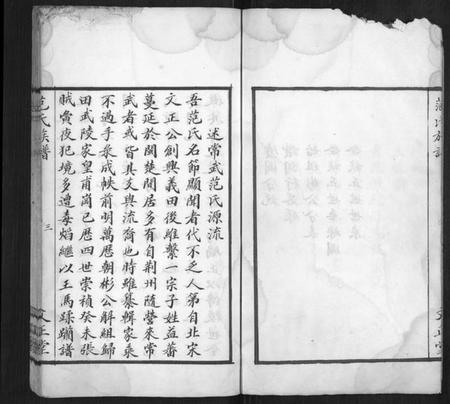 述常武范氏源流
吾范氏名節顯聞者代不乏人第自北宋
文正公創興義田後雖繫一宗子姓益蕃
蔓延於閩楚間居多有自荆州隨營來常
武者或皆其支與流裔也時雖纂輯家乘
不過手彔成帙前明萬歷朝彬公解組歸
田武陵家皇甫崗已歷四世崇禎癸未張
賊夤夜犯境多遭毒焰繼以王馬蹂躪譜
范氏族譜
三
文正堂